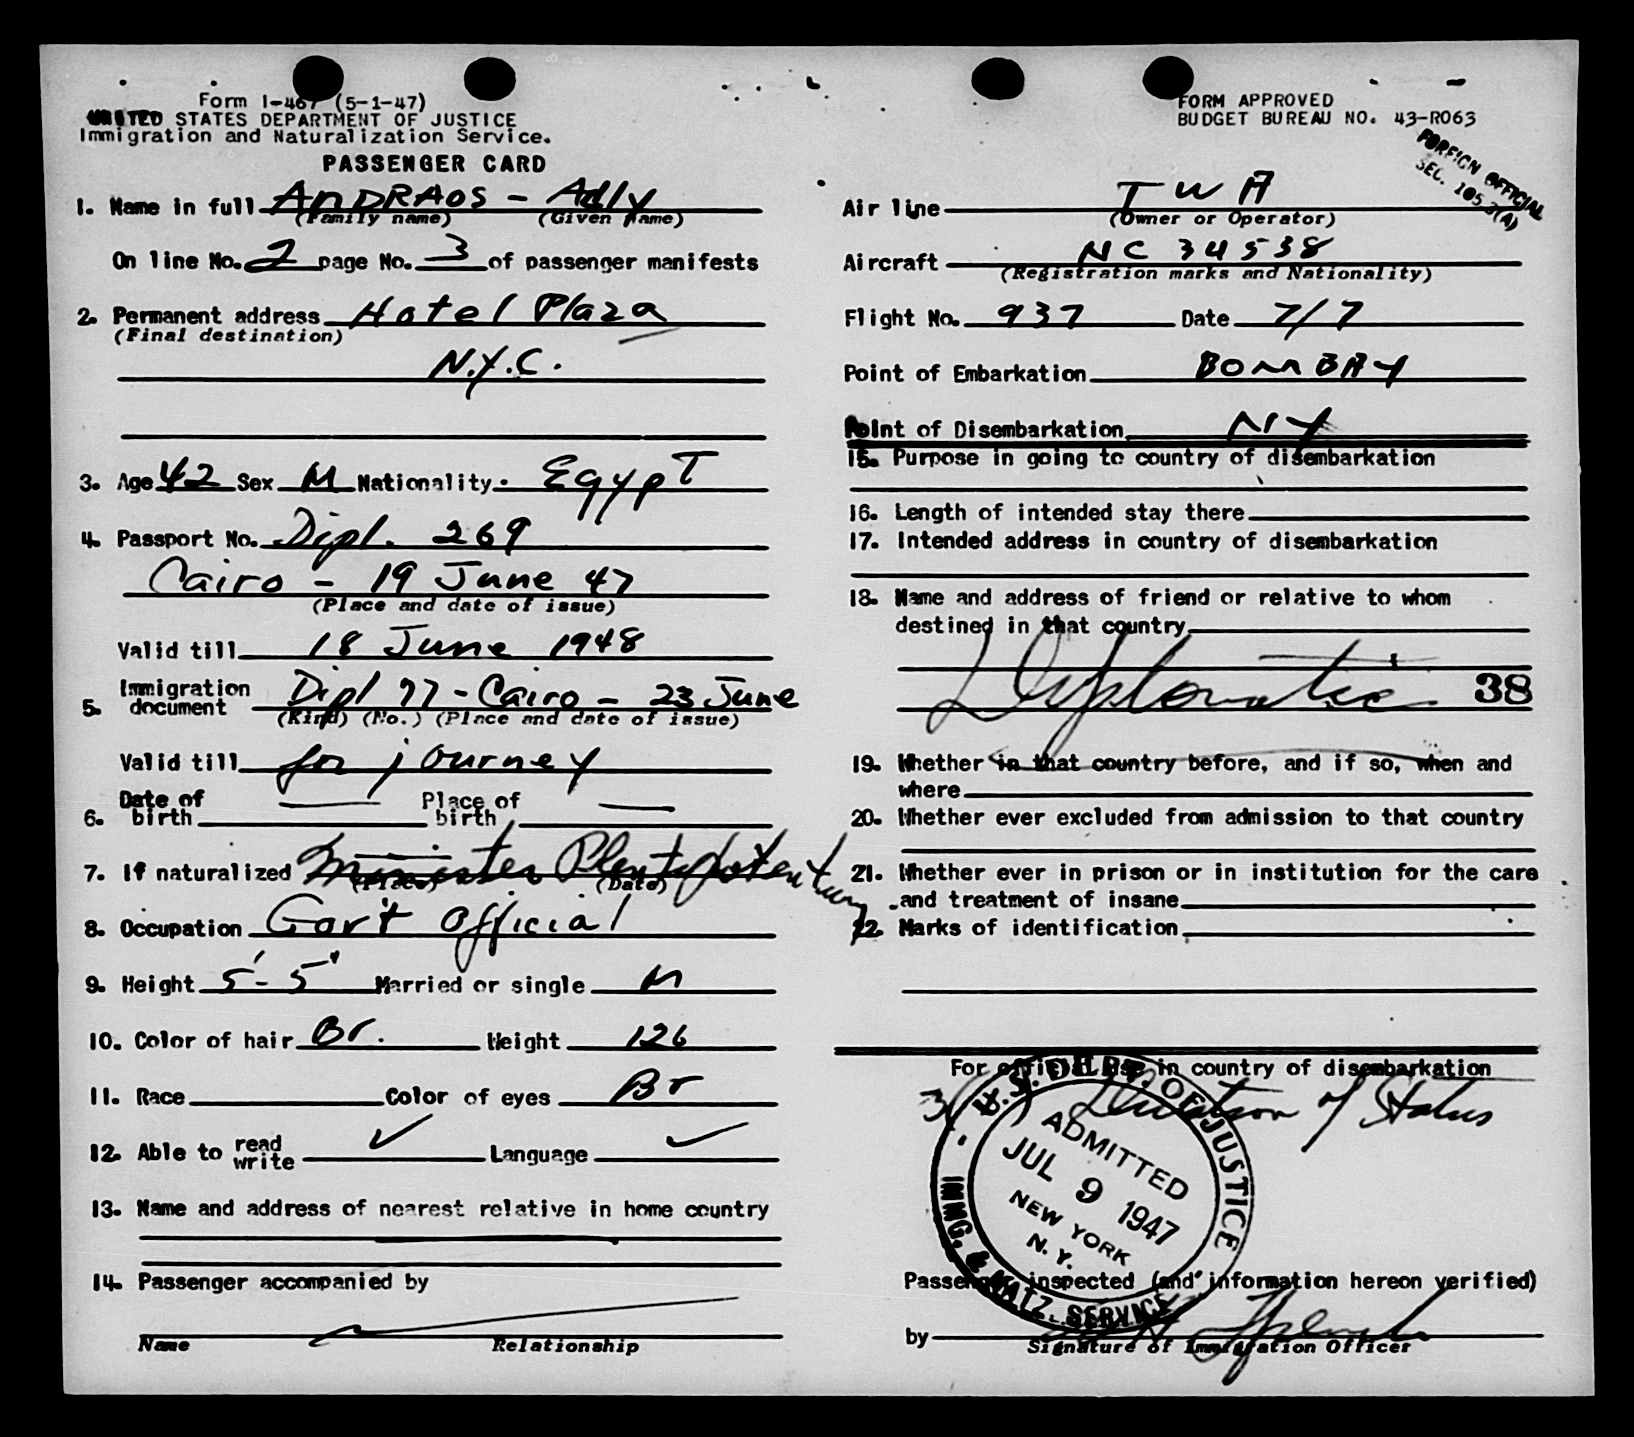 Form I-467 (5-1-47)
UNITED STATES DEPARTMENT OF JUSTICE
Immigration and Naturalization Service.
PASSENGER CARD
1. Name in full ANDRAOS - Adly
(Family name) (Given name)
On line No. 2 page No. 3 of passenger manifests
2. Permanent address Hotel Plaza
(Final destination)
N.Y.C.
3. Age 42 Sex M Nationality Egypt
4. Passport No. Dipl. 269
Cairo - 19 June 47
(Place and date of issue)
Valid till 18 June 1948
5. Immigration document Dipl 77 - Cairo - 23 June
(Kind) (No.) (Place and date of issue)
Valid till for journey
6. Date of birth — Place of birth —
7. If naturalized Minister Plenipotentiary
(Place) (Date)
8. Occupation Gov't Official
9. Height 5'-5" Married or single M
10. Color of hair Br. Weight 126
11. Race Color of eyes Br
12. Able to read write ✓ Language ✓
13. Name and address of nearest relative in home country
14. Passenger accompanied by
Name Relationship
FORM APPROVED
BUDGET BUREAU NO. 43-R063
FOREIGN OFFICIAL
SEC. 105.3(A)
Air line TWA
(Owner or Operator)
Aircraft NC 34538
(Registration marks and Nationality)
Flight No. 937 Date 7/7
Point of Embarkation BOMBAY
Point of Disembarkation NY
15. Purpose in going to country of disembarkation
16. Length of intended stay there
17. Intended address in country of disembarkation
18. Name and address of friend or relative to whom
destined in that country
Diplomatic 38
19. Whether in that country before, and if so, when and
where
20. Whether ever excluded from admission to that country
21. Whether ever in prison or in institution for the care
and treatment of insane
22. Marks of identification
For official use in country of disembarkation
3(1) Duration of Status
U.S. DEPT. OF JUSTICE
ADMITTED
JUL 9 1947
NEW YORK
N.Y.
IMMG. & NATZ. SERVICE
Passenger inspected (and information hereon verified)
by
Signature of Immigration Officer